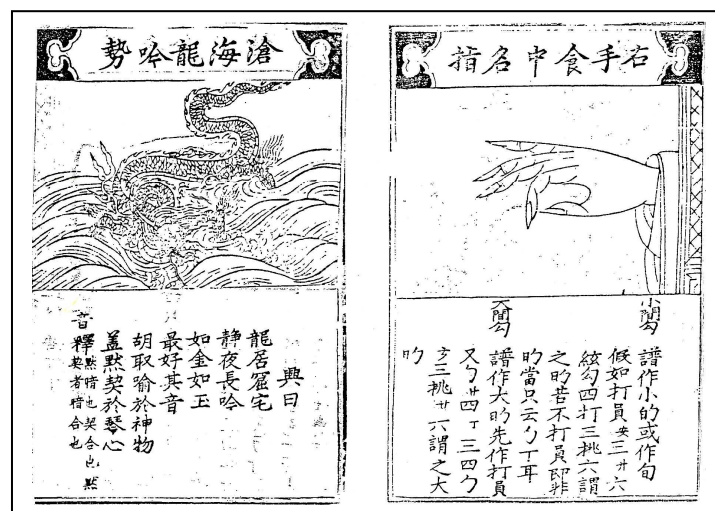 右手食中名指
小間勾
譜作小的或作旬
假如打員安三廾六
絃勾四打三挑六謂
之的若不打員即非
的當只云勹丁耳
大間勾
譜作大的先作打員
又勹廾四丁三四勹
三挑廾六謂之大
的
滄海龍吟勢
興曰
龍居窟宅
靜夜長吟
如金如玉
最好其音
胡取喻於神物
蓋默契於琴心
音釋默暗也契合也默
契者暗合也